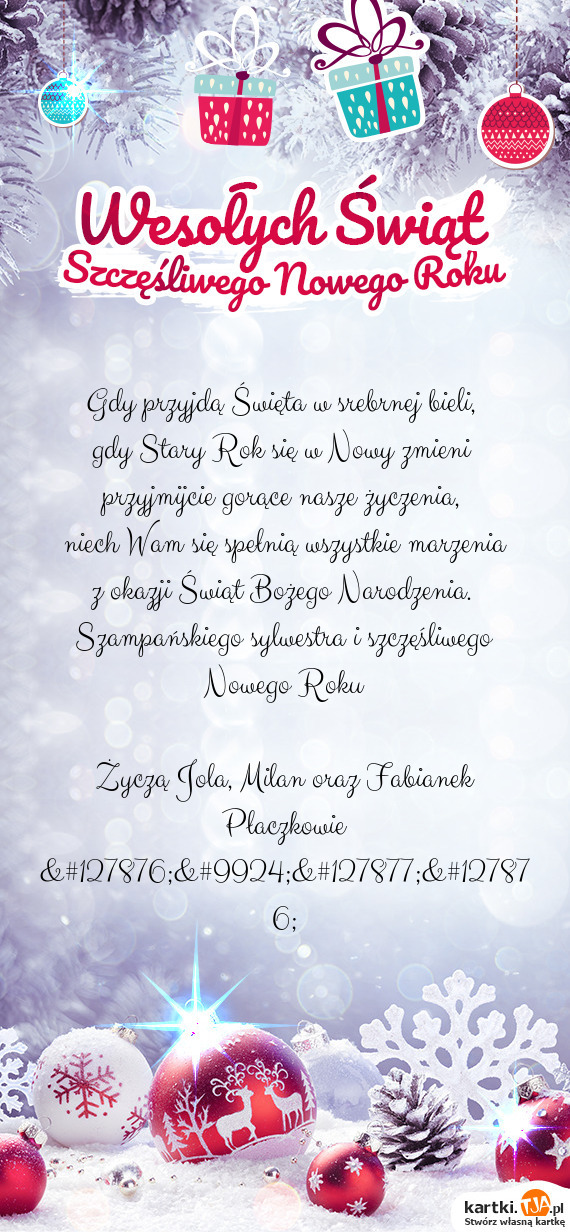 Wesołych Świąt
Szczęśliwego Nowego Roku
Gdy przyjdą Święta w srebrnej bieli,
gdy Stary Rok się w Nowy zmieni
przyjmijcie gorące nasze życzenia,
niech Wam się spełnią wszystkie marzenia
z okazji Świąt Bożego Narodzenia.
Szampańskiego sylwestra i szczęśliwego
Nowego Roku
Życzą Jola, Milan oraz Fabianek
Płaczkowie
&#127876;&#9924;&#127877;&#12787
6;
kartki.TJA.pl
Stwórz własną kartkę